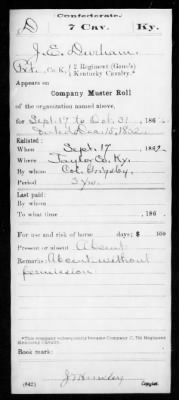 Confederate.
D 7 Cav. Ky.
J. E. Durham
Pvt., Co. K, 2 Regiment (Gano's)
Kentucky Cavalry.*
Appears on
Company Muster Roll
of the organization named above,
for Sept. 17 to Oct. 31, 186
dated Dec. 15, 1862.
Enlisted:
When Sept. 17, 1862.
Where Taylor Co. Ky.
By whom Col. Grigsby
Period 3 yrs.
Last paid:
By whom
To what time , 186 .
For use and risk of horse days, $ 100
Present or absent Absent
Remarks: Absent without
permission
*This company subsequently became Company C, 7th Regiment
Kentucky Cavalry.
Book mark:
(642) Copyist.